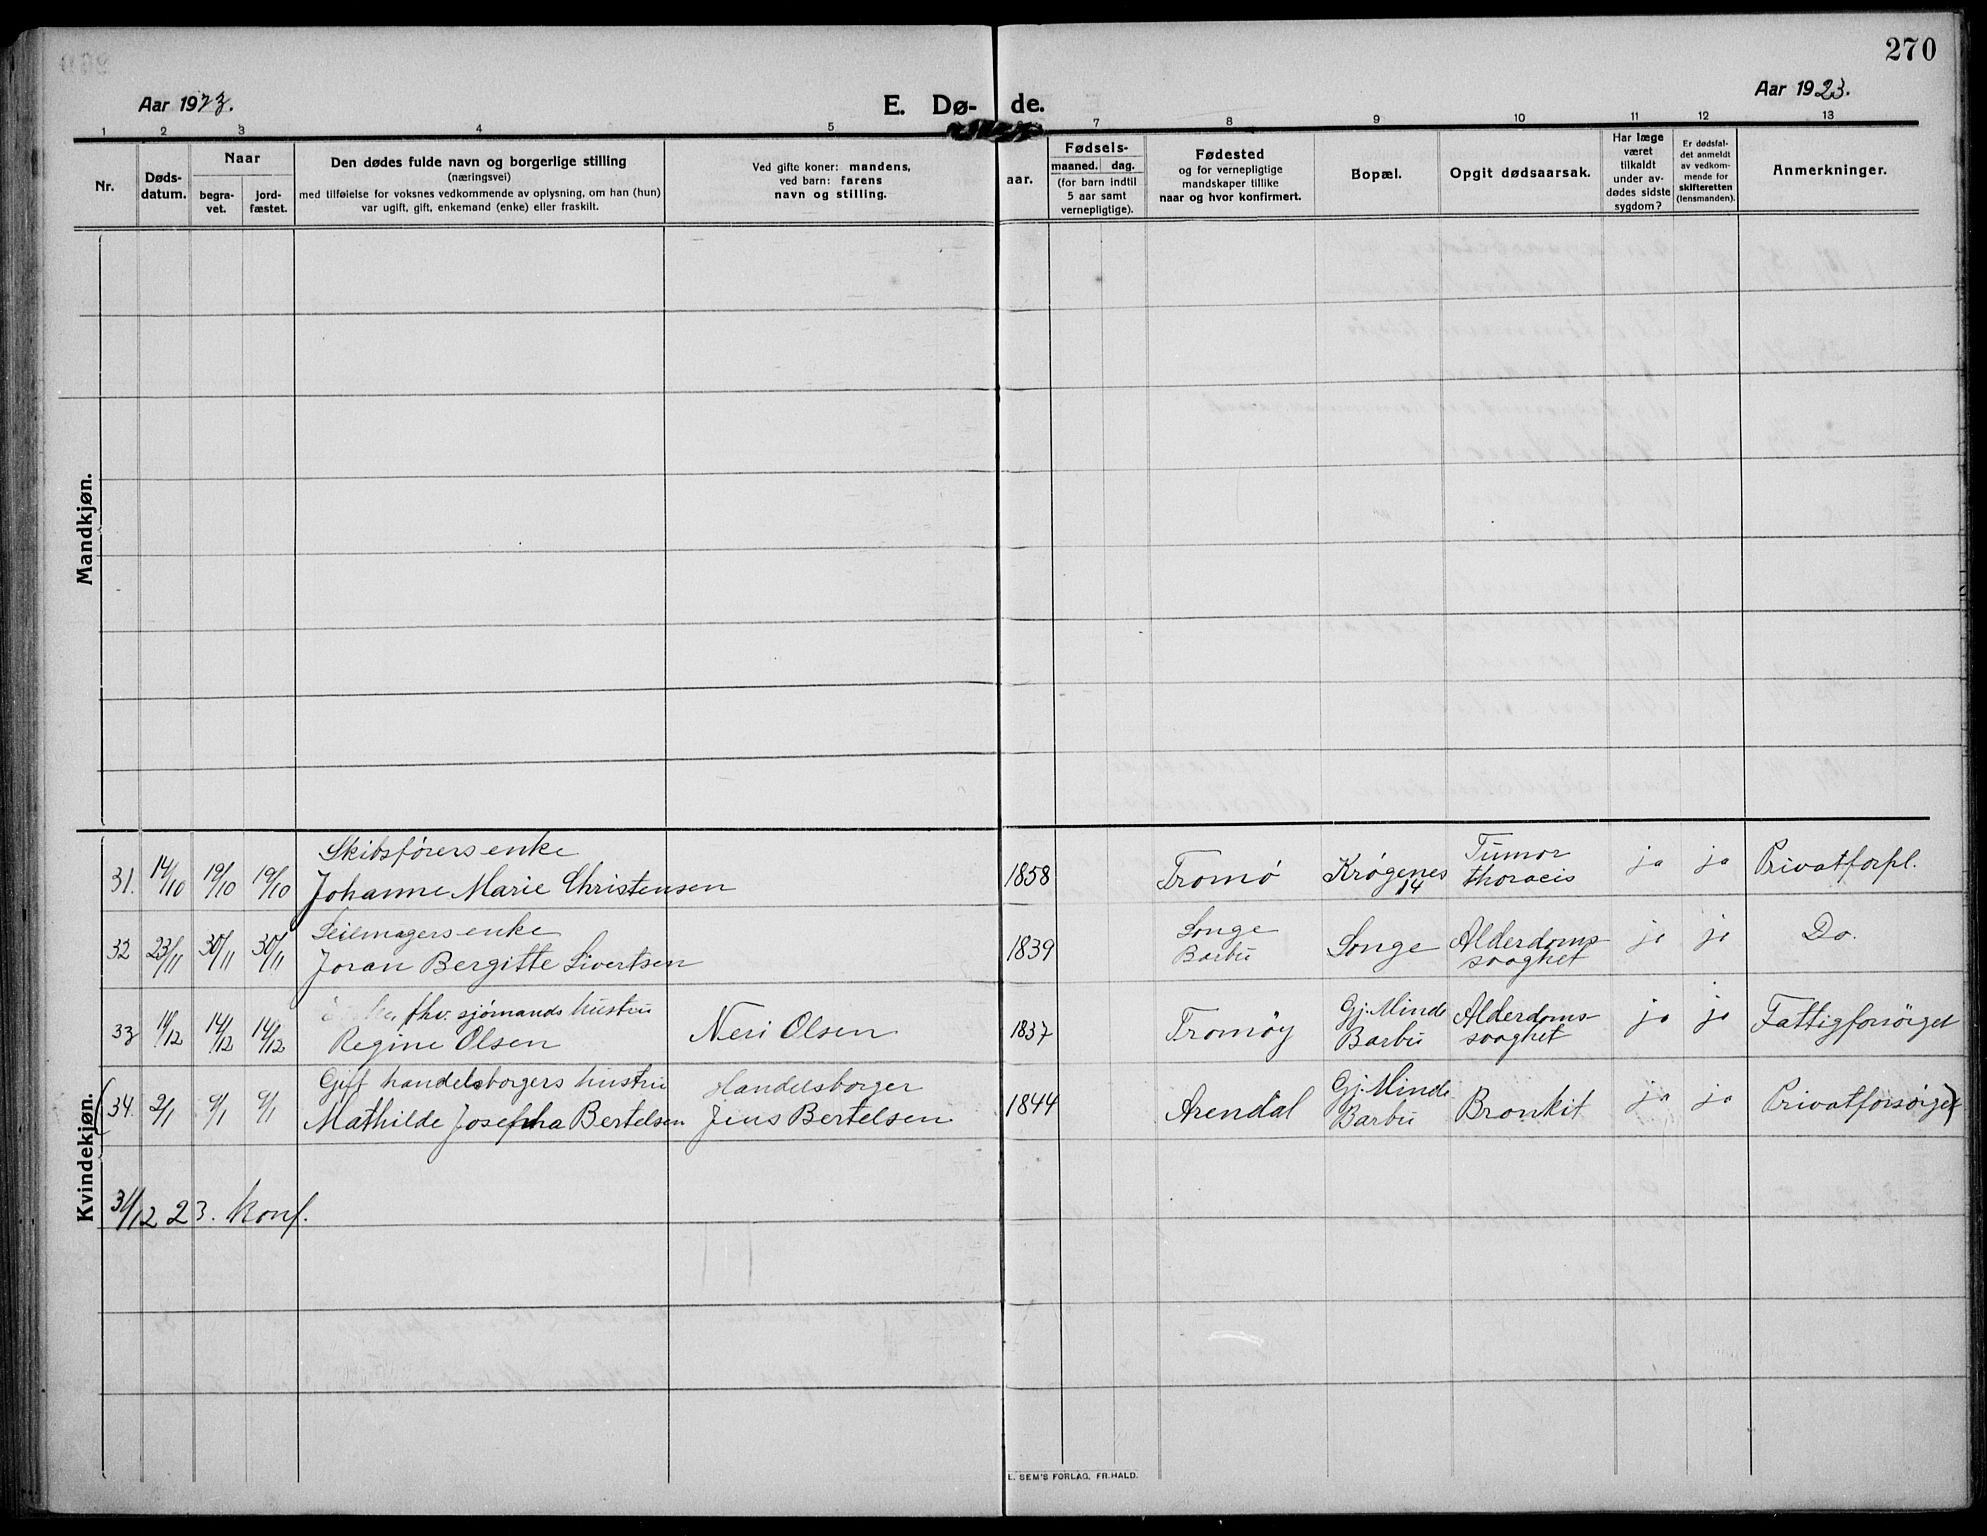 270
Aar 1923.
E. Dø- de.
Aar 1923.
1 2 3 4 5 7 8 9 10 11 12 13
Nr.
Døds-
datum.
Naar
begra-
vet.
jord-
fæstet.
Den dødes fulde navn og borgerlige stilling
(næringsvei)
med tilføielse for voksnes vedkommende av oplysning, om han (hun)
var ugift, gift, enkemand (enke) eller fraskilt.
Ved gifte koner: mandens,
ved barn: farens
navn og stilling.
aar.
Fødsels-
maaned. dag.
(for barn indtil
5 aar samt
vernepligtige).
Fødested
og for vernepligtige
mandskaper tillike
naar og hvor konfirmert.
Bopæl.
Opgit dødsaarsak.
Har læge
været
tilkaldt
under av-
dødes sidste
sygdom?
Er dødsfal-
det anmeldt
av vedkom-
mende for
skifteretten
(lensmanden).
Anmerkninger.
Mandkjøn.
Kvindekjøn.
31. 14/10 19/10 19/10 Skibsførers enke
Johanne Marie Christensen
1858 Tromø Krøgenes
14
Tumor
thoracis
ja ja Privatforpl.
32 23/11 30/11 30/11 Seilmagers enke
Joran Bergitte Sivertsen
1839 Songe
Barbu
Songe Alderdoms
svaghet
ja ja Do.
33 11/12 14/12 14/12 fhv. sjømands hustru
Regine Olsen
Neri Olsen 1837 Tromøy Gj. Minde
Barbu
Alderdoms
svaghet
ja ja Fattigforsørget
(34. 2/1 9/1 9/1 Gift handelsborgers hustru
Mathilde Josepha Bertelsen
Handelsborger
Jens Bertelsen
1844 Arendal Gj. Minde
Barbu
Bronkit ja ja Privatforsørget)
31/12 23. Konf.
L. SEM'S FORLAG, FR.HALD.